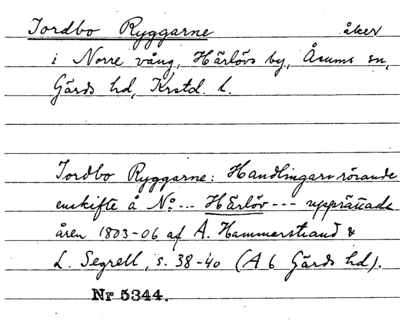 Jordbo Ryggarne åker
i Norre vång, Härlövs by, Åsums sn,
Gärds hd, Krstd. l.
Jordbo Ryggarne: Handlingar rörande
enskifte å No --- Härlöv --- upprättade
åren 1803-06 af A. Hammerstrand &
L. Segrell, s. 38-40 (A 6 Gärds hd).
Nr 5344.